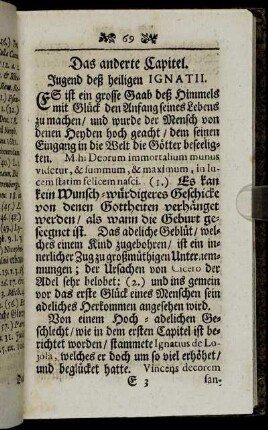 69
Das anderte Capitel.
Jugend deß heiligen IGNATII.
ES ist ein grosse Gaab deß Himmels
mit Glück den Anfang seines Lebens
zu machen / und wurde der Mensch von
denen Heyden hoch geacht / dem seinen
Eingang in die Welt die Götter beseelig-
ten. Mihi Deorum immortalium munus
videtur, & summum, & maximum, in lu-
cem statim felicem nasci. (1.) Es kan
kein Wunsch-würdigeres Geschicke
von denen Gottheiten verhänget
werden / als wann die Geburt ge-
seegnet ist. Das adeliche Geblüt / wel-
ches einem Kind zugebohren / ist ein in-
nerlicher Zug zu großmüthigen Unterneh-
mungen; der Ursachen von Cicero der
Adel sehr belobet: (2.) und ins gemein
vor das erste Glück eines Menschen sein
adeliches Herkommen angesehen wird.
Von einem Hoch-adelichen Ge-
schlecht / wie in dem ersten Capitel ist be-
richtet worden / stammete Ignatius de Lo-
jola, welches er doch um so viel erhöhet /
und beglücket hatte. Vincens decorem
E 3
san-